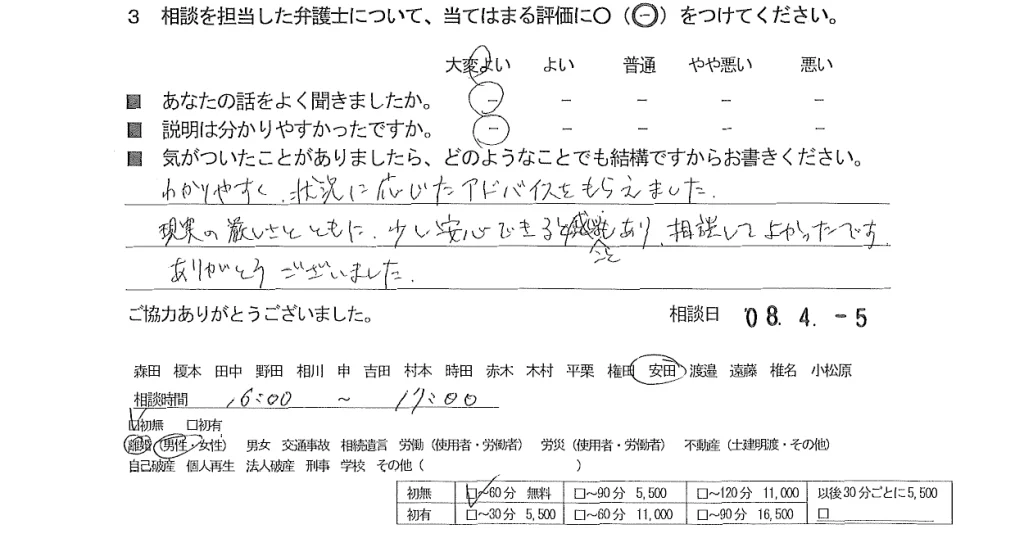 3 相談を担当した弁護士について、当てはまる評価に○(㊀)をつけてください。
大変よい よい 普通 やや悪い 悪い
■ あなたの話をよく聞きましたか。 － － － － －
■ 説明は分かりやすかったですか。 － － － － －
■ 気がついたことがありましたら、どのようなことでも結構ですからお書きください。
わかりやすく、状況に応じたアドバイスをもらえました。
現実の厳しさとともに、少し安心できることもあり、相談してよかったです。
ありがとうございました。
ご協力ありがとうございました。 相談日 '08. 4. -5
森田 榎本 田中 野田 相川 申 吉田 村本 時田 赤木 木村 平栗 権田 安田 渡邉 遠藤 椎名 小松原
相談時間 16:00 ~ 17:00
□初無 □初有
離婚(男性・女性) 男女 交通事故 相続遺言 労働(使用者・労働者) 労災(使用者・労働者) 不動産(土建明渡・その他)
自己破産 個人再生 法人破産 刑事 学校 その他( )
初無 □~60分 無料 □~90分 5,500 □~120分 11,000 以後30分ごとに5,500
初有 □~30分 5,500 □~60分 11,000 □~90分 16,500 □